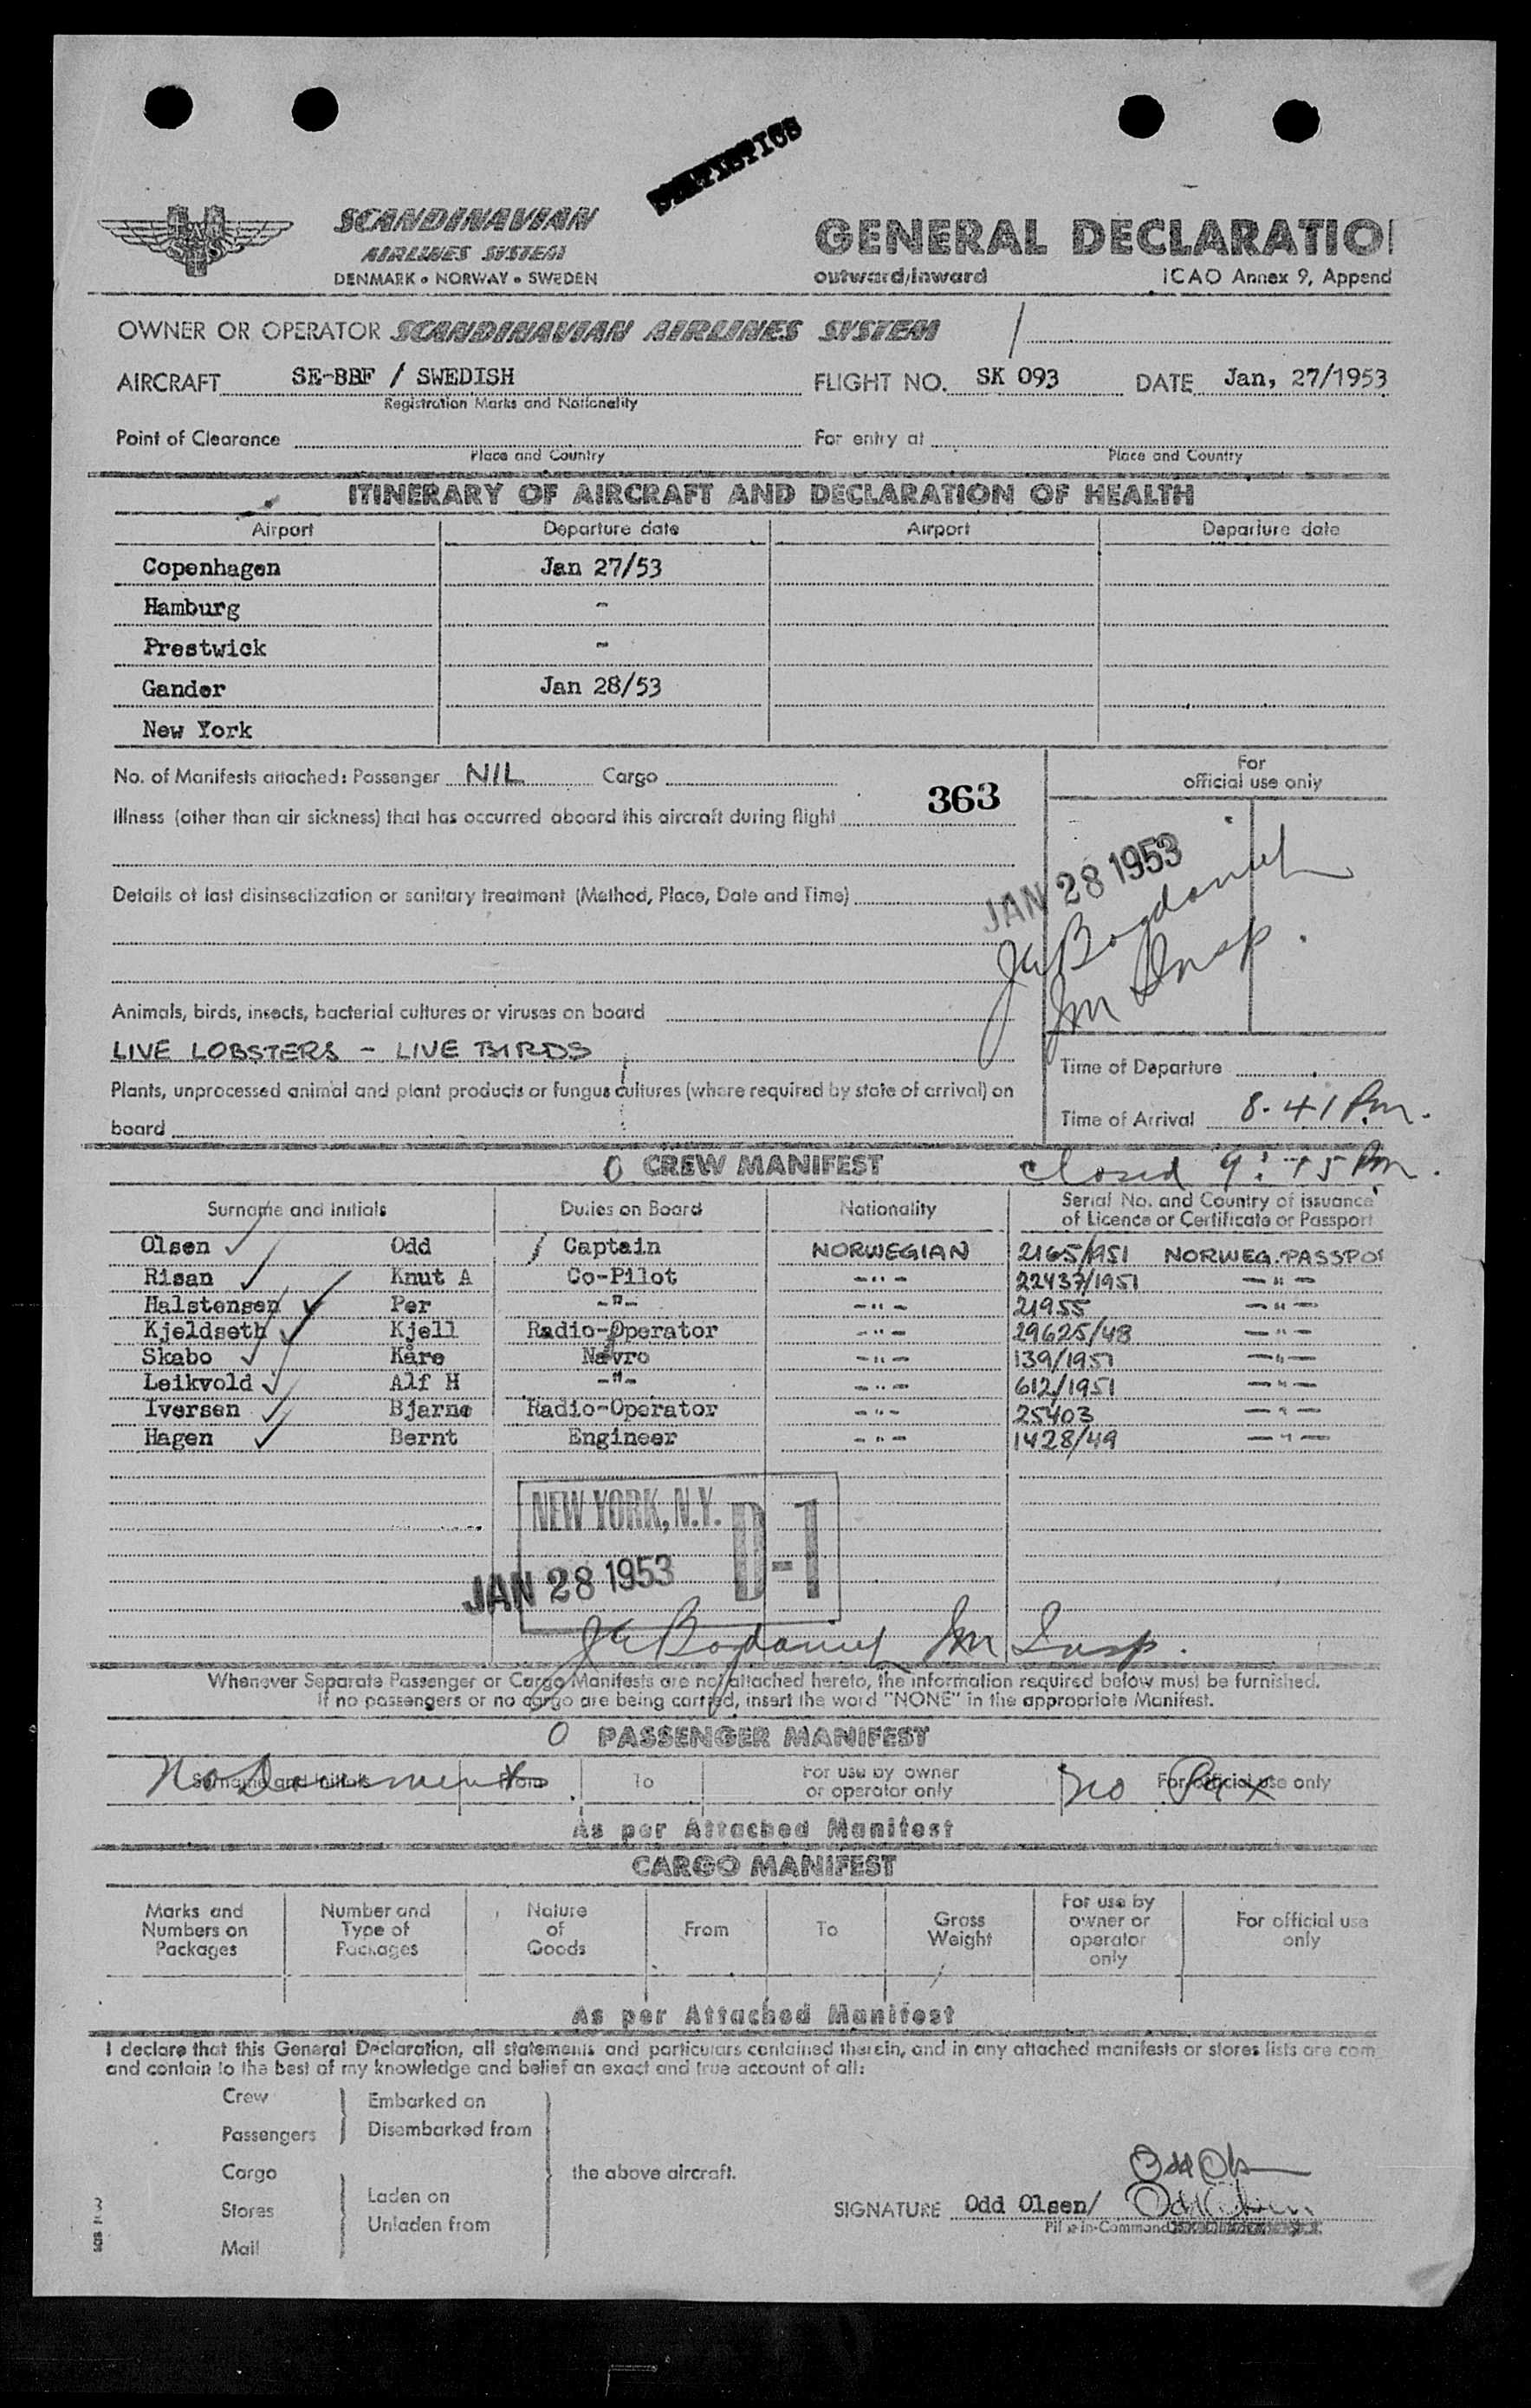 STATISTICS
SAS
SCANDINAVIAN
AIRLINES SYSTEM
DENMARK • NORWAY • SWEDEN
GENERAL DECLARATIO
outward/inward ICAO Annex 9, Append
OWNER OR OPERATOR SCANDINAVIAN AIRLINES SYSTEM /
AIRCRAFT SE-BBF / SWEDISH FLIGHT NO. SK 093 DATE Jan, 27/1953
Registration Marks and Nationality
Point of Clearance For entry at
Place and Country Place and Country
ITINERARY OF AIRCRAFT AND DECLARATION OF HEALTH
Airport Departure date Airport Departure date
Copenhagen Jan 27/53
Hamburg -
Prestwick -
Gander Jan 28/53
New York
No. of Manifests attached: Passenger NIL Cargo
For
official use only
363
Illness (other than air sickness) that has occurred aboard this aircraft during flight
JAN 28 1953
Details of last disinsectization or sanitary treatment (Method, Place, Date and Time)
Im Insp.
Animals, birds, insects, bacterial cultures or viruses on board
LIVE LOBSTERS - LIVE BIRDS
Plants, unprocessed animal and plant products or fungus cultures (where required by state of arrival) on
board
Time of Departure
Time of Arrival 8.41 Pm.
0 CREW MANIFEST closed 9:15 Pm.
Surname and Initials Duties on Board Nationality Serial No. and Country of issuance
of Licence or Certificate or Passport
Olsen Odd Captain NORWEGIAN 2165/1951 NORWEG. PASSPO
Risan Knut A Co-Pilot -"- 22437/1951 -"-
Halstensen Per -"- -"- 21955 -"-
Kjeldseth Kjell Radio-Operator -"- 29625/48 -"-
Skabo Kåre Navro -"- 139/1951 -"-
Leikvold Alf H -"- -"- 612/1951 -"-
Iversen Bjarne Radio-Operator -"- 25403 -"-
Hagen Bernt Engineer -"- 1428/49 -"-
NEW YORK, N.Y. D-1
JAN 28 1953
Im Insp.
Whenever Separate Passenger or Cargo Manifests are not attached hereto, the information required below must be furnished.
If no passengers or no cargo are being carried, insert the word "NONE" in the appropriate Manifest.
0 PASSENGER MANIFEST
Surname and Initials From To For use by owner
or operator only For official use only
No Documents no Pax
As per Attached Manifest
CARGO MANIFEST
Marks and
Numbers on
Packages
Number and
Type of
Packages
Nature
of
Goods
From
To
Gross
Weight
For use by
owner or
operator
only
For official use
only
As per Attached Manifest
I declare that this General Declaration, all statements and particulars contained therein, and in any attached manifests or stores lists are com
and contain to the best of my knowledge and belief an exact and true account of all:
Crew
Passengers
Embarked on
Disembarked from
Cargo
Stores
Mail
Laden on
Unladen from
the above aircraft.
Odd Olsen
SIGNATURE Odd Olsen/ Odd Olsen
Pilot-in-Command